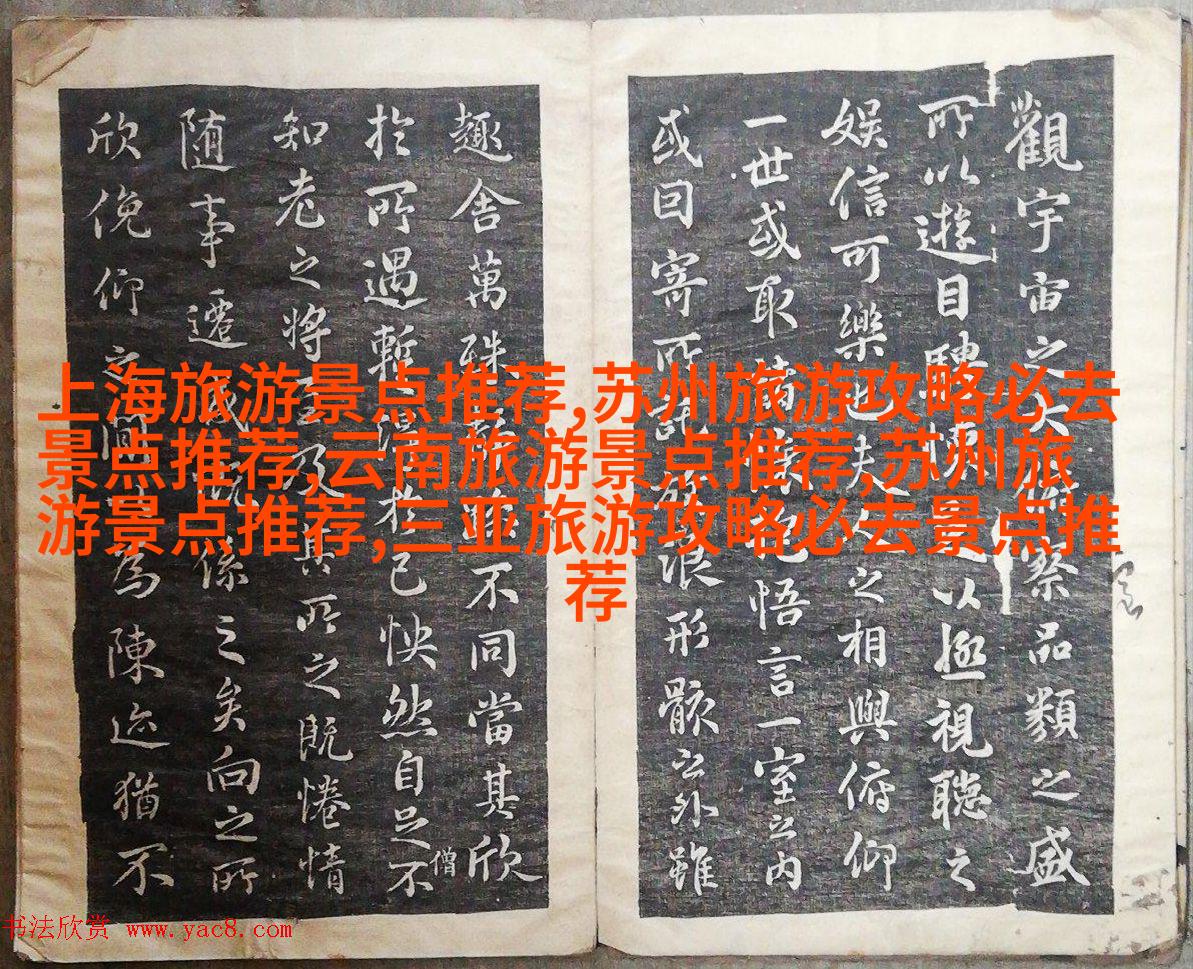 上海旅游景点推荐,苏州旅游攻略必去
景点推荐,云南旅游景点推荐,苏州旅
游景点推荐,三亚旅游攻略必去景点推
荐
觀宇宙之大俯察品類之盛
所以遊目騁懷足以極視聽之
娱信可樂也夫人之相與俯仰
一世或取諸懷抱悟言一室之内
或因寄所託放浪形骸之外雖
趣舍萬殊靜躁不同當其欣
於所遇暫得於己怏然自足不
僧
知老之將至及其所之既惓情
随事遷感慨係之矣向之所
欣俛仰之間以為陳迹猶不
书法欣赏 www.yac8.com